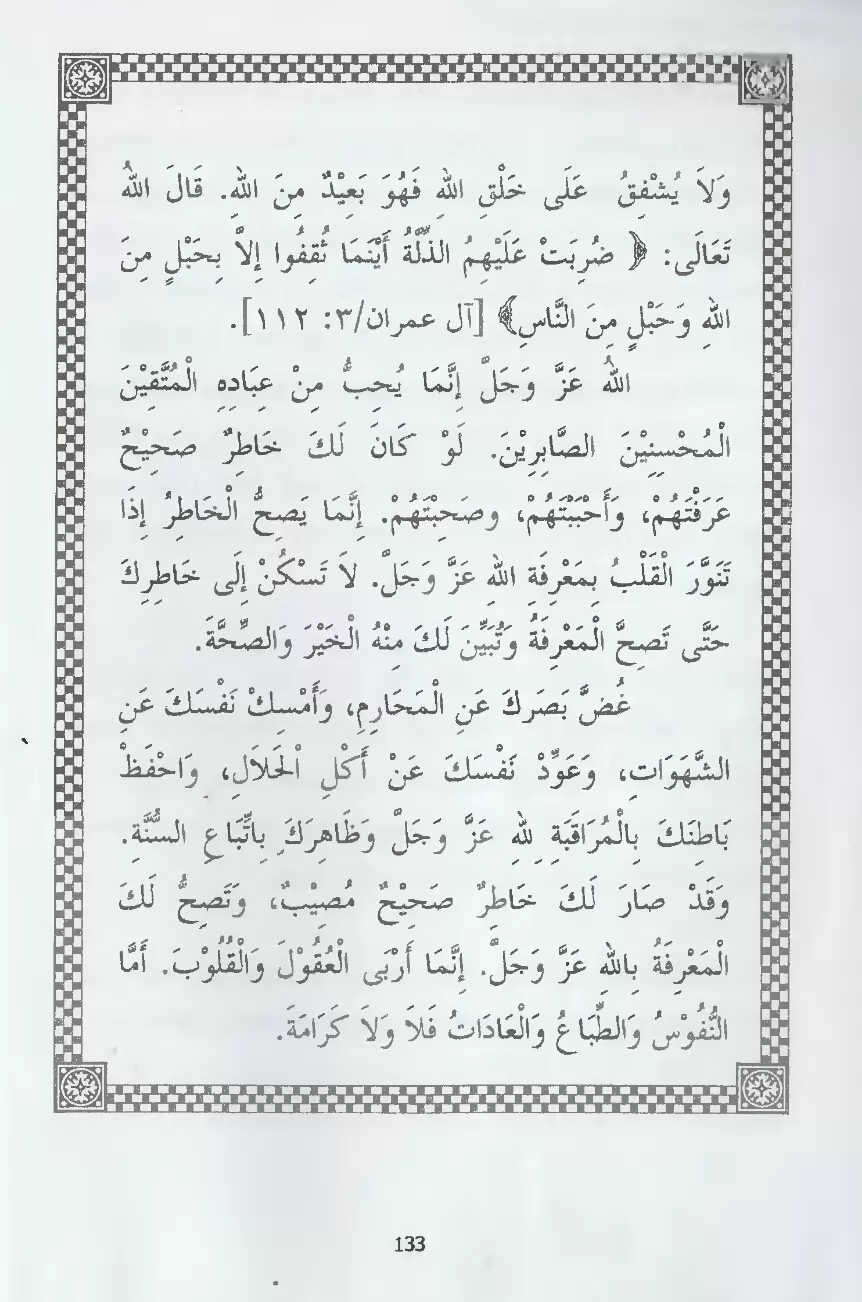 وَلاَ يُشْفِقُ عَلَى خَلْقِ اللهِ فَهُوَ بَعِيْدٌ مِنَ اللهِ. قَالَ اللهُ
تَعَالَى: ﴿ ضُرِبَتْ عَلَيْهِمُ الذِّلَّةُ أَيْنَمَا ثُقِفُوا إِلاَّ بِحَبْلٍ مِنَ
اللهِ وَحَبْلٍ مِنَ النَّاسِ﴾ [آل عمران/٣: ١١٢].
اللهُ عَزَّ وَجَلَّ إِنَّمَا يُحِبُّ مِنْ عِبَادِهِ الْمُتَّقِيْنَ
الْمُحْسِنِيْنَ الصَّابِرِيْنَ. لَوْ كَانَ لَكَ خَاطِرٌ صَحِيْحٌ
عَرَفْتَهُمْ، وَأَحْبَبْتَهُمْ، وصَحِبْتَهُمْ. إِنَّمَا يَصِحُّ الْخَاطِرُ إِذَا
تَنَوَّرَ الْقَلْبُ بِمَعْرِفَةِ اللهِ عَزَّ وَجَلَّ. لاَ تَسْكُنْ إِلَى خَاطِرِكَ
حَتَّى تَصِحَّ الْمَعْرِفَةُ وَتُبَيِّنَ لَكَ مِنْهُ الْخَيْرَ وَالصِّحَّةَ.
غُضَّ بَصَرَكَ عَنِ الْمَحَارِمِ، وَأَمْسِكْ نَفْسَكَ عَنِ
الشَّهَوَاتِ، وَعَوِّدْ نَفْسَكَ عَنْ أَكْلِ الْحَلاَلِ، وَاحْفَظْ
بَاطِنَكَ بِالْمُرَاقَبَةِ للهِ عَزَّ وَجَلَّ وَظَاهِرَكَ بِاتِّبَاعِ السُّنَّةِ.
وَقَدْ صَارَ لَكَ خَاطِرٌ صَحِيْحٌ مُصِيْبٌ، وَتَصِحُّ لَكَ
الْمَعْرِفَةُ بِاللهِ عَزَّ وَجَلَّ. إِنَّمَا أُرْبَى الْعُقُوْلَ وَالْقُلُوْبَ. أَمَّا
النُّفُوْسُ وَالطِّبَاعُ وَالْعَادَاتُ فَلاَ وَلاَ كَرَامَةَ.
133